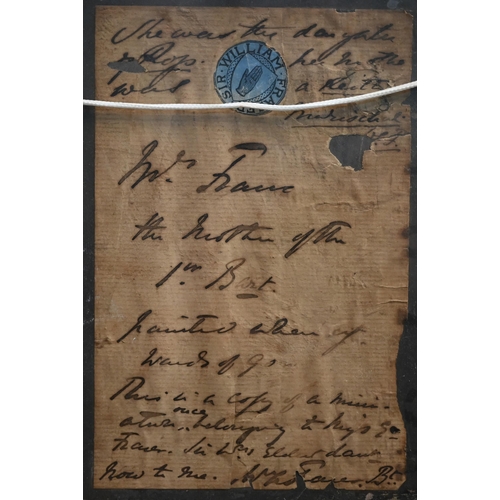 She was the daughter
of Ross. her mother
was a Keith
SIR · WILLIAM · FRASER
Mrs. Fraser
the Mother of the
1st Bart.
painted when up
wards of 90
This is a copy of a mini-
ature, once belonging to
Fraser. Sir Wms Elder daur
now to me. Wm Fraser. Bt